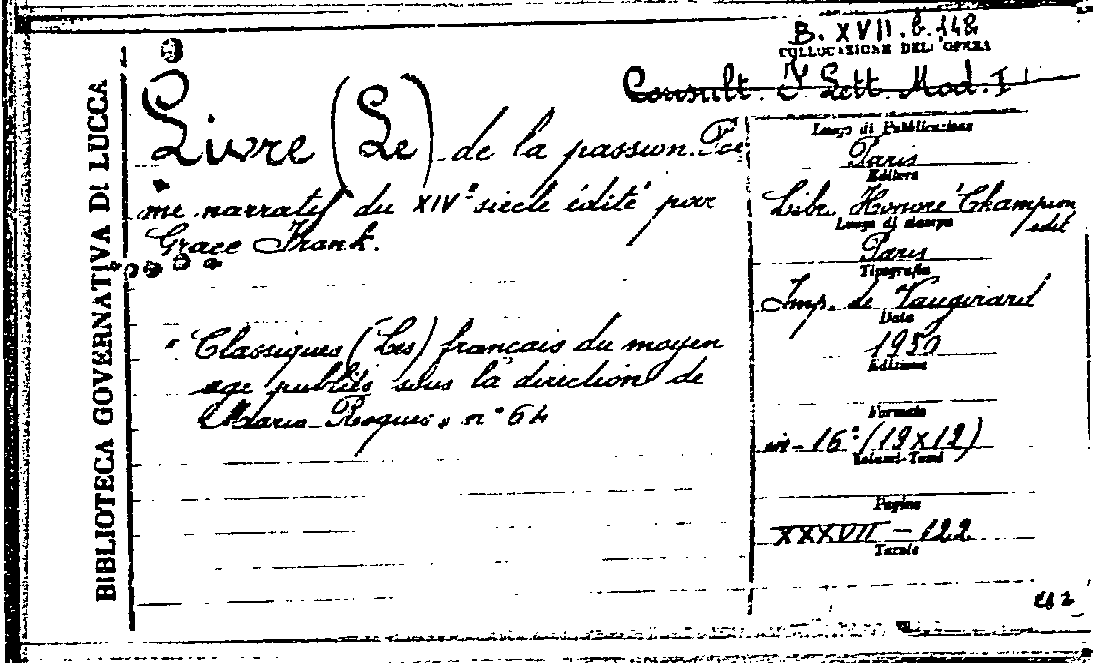 B. XVII. b. 142
COLLOCAZIONE DELL'OPERA
Consult. Lett. Mod. I
BIBLIOTECA GOVERNATIVA DI LUCCA
Livre (Le) de la passion. Poe
me narratif du XIV° siècle édité par
Grace Frank.
"Classiques (Les) français du moyen
age publiés sous la direction de
Mario Roques" n° 64
Luogo di Pubblicazione
Paris
Editore
Libr. Honoré Champion
edit
Luogo di stampa
Paris
Tipografia
Imp. de Vaugirard
Data
1950
Edizione
Formato
in-16° (19x12)
Volumi-Tomi
Pagine
XXXVII - 122
Tavole